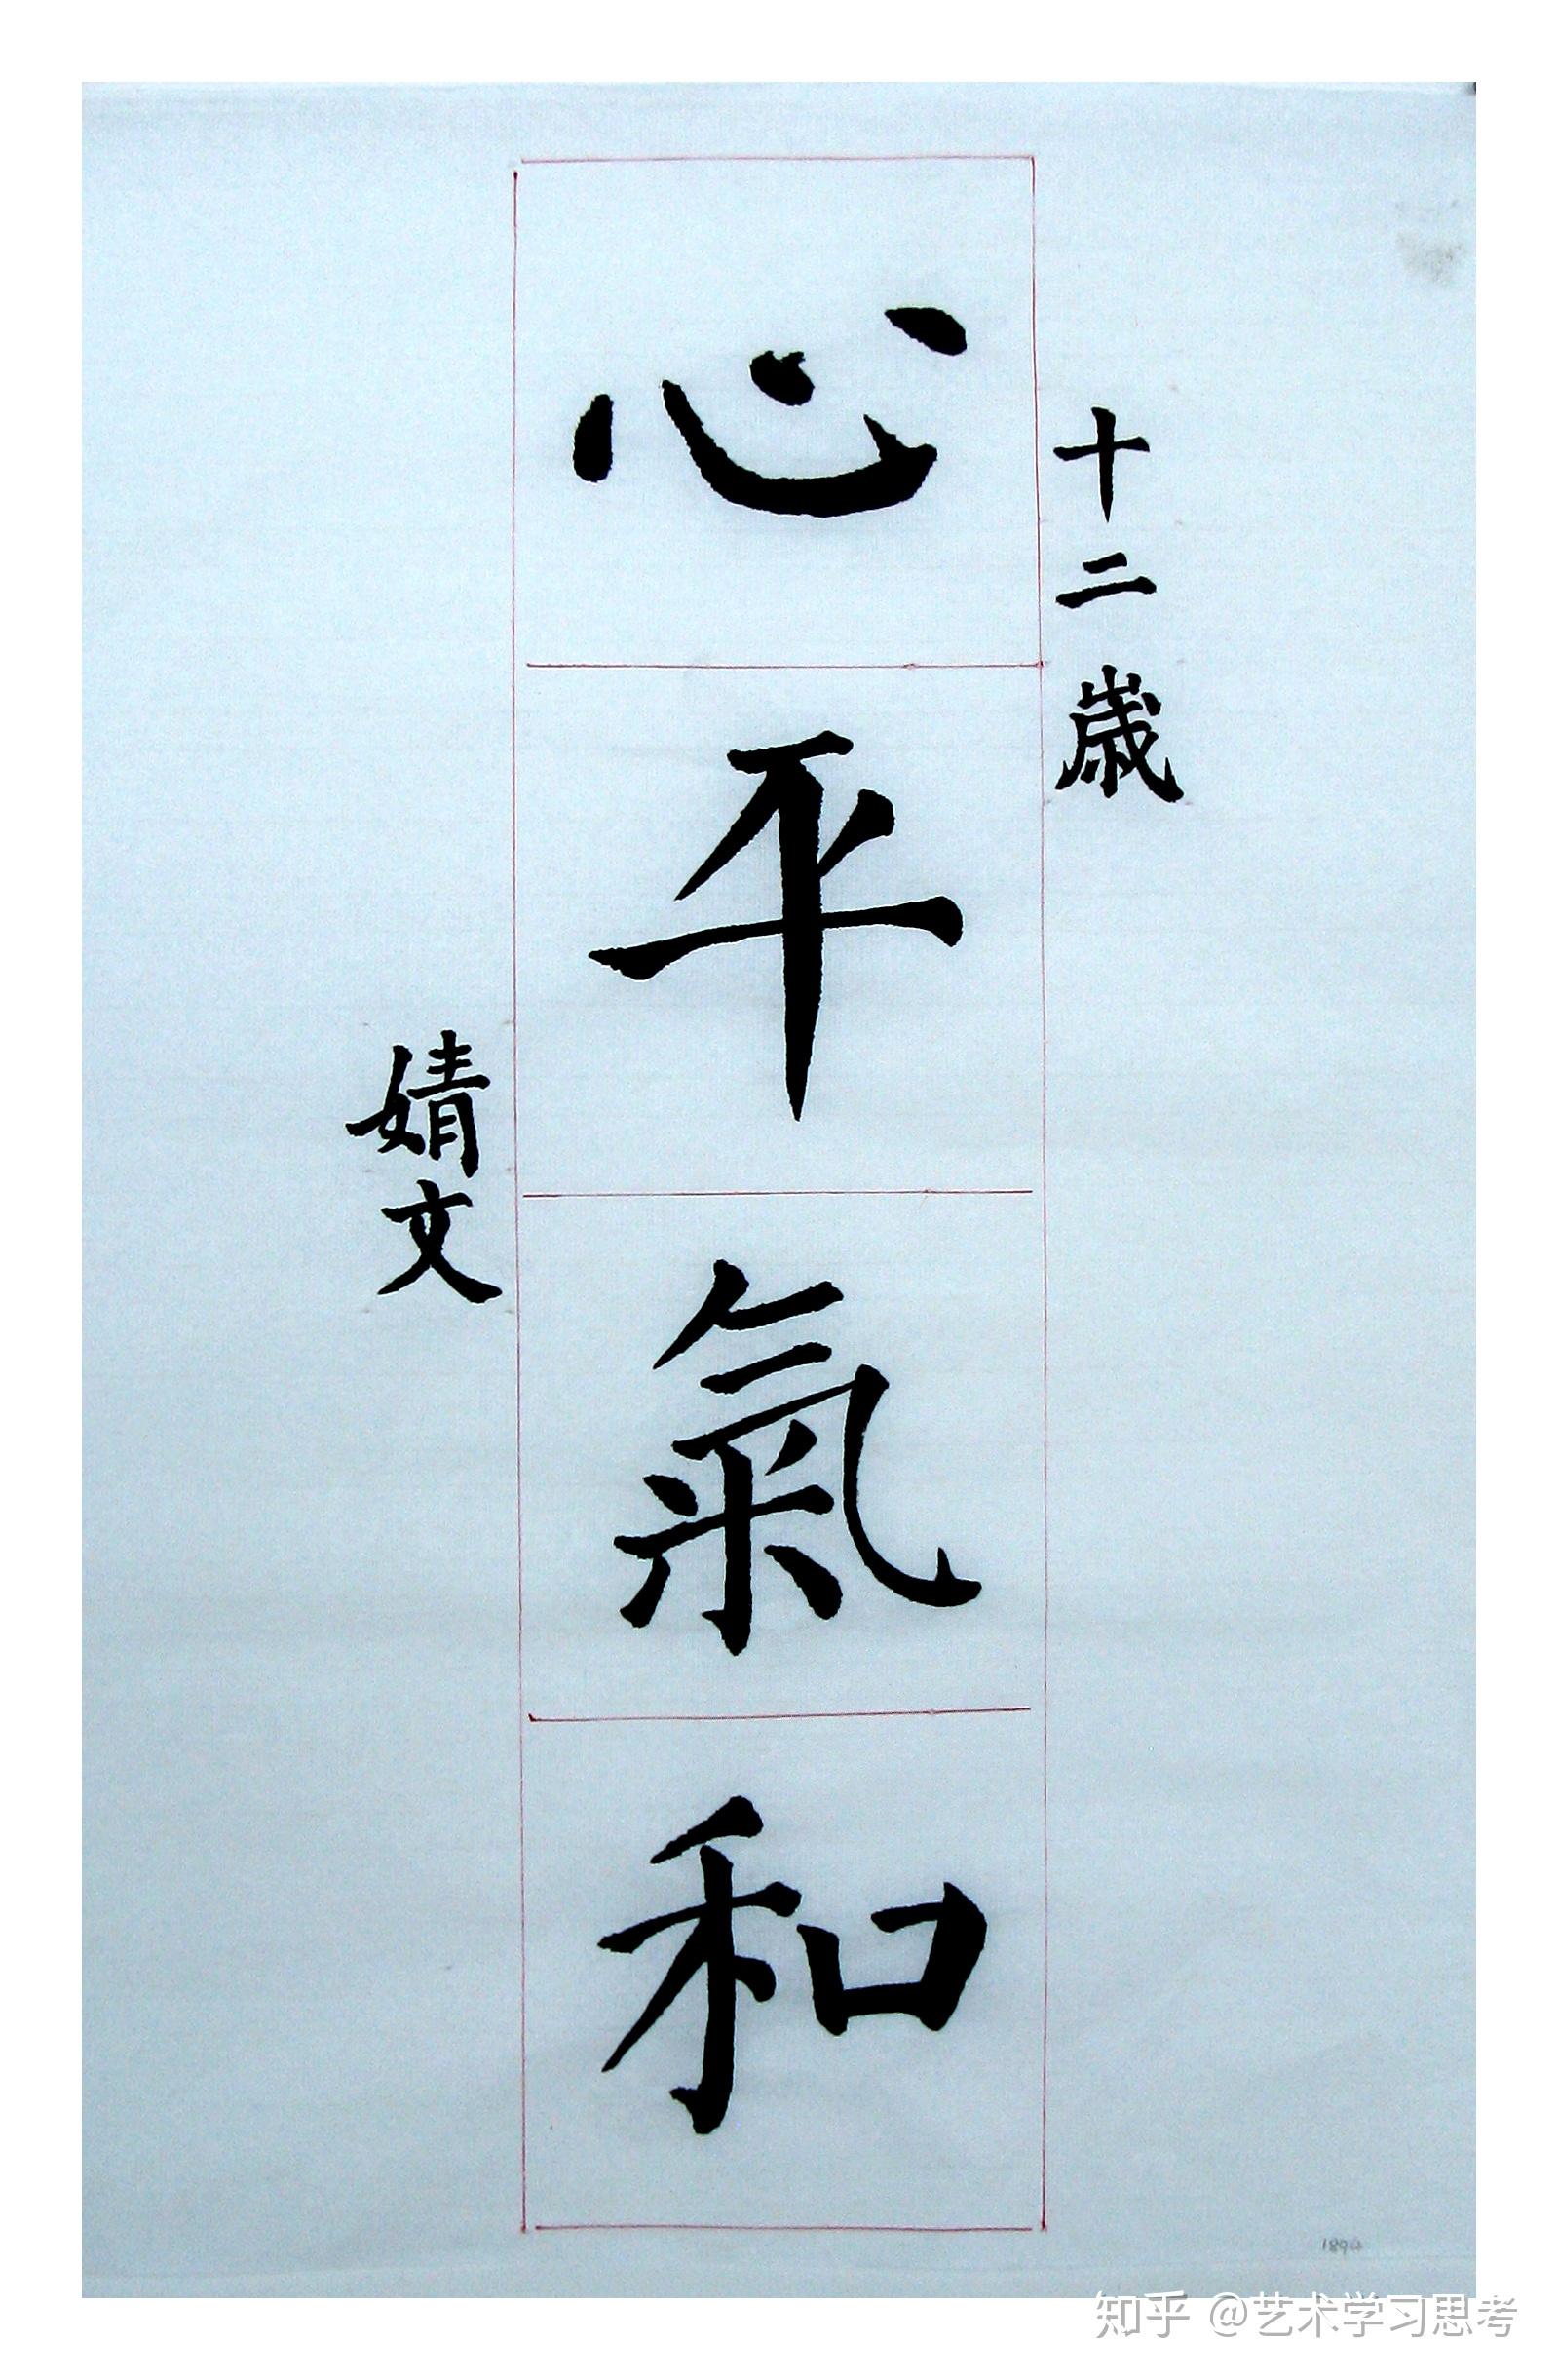 十二歲
心平氣和
婧文
1894
知乎 @艺术学习思考